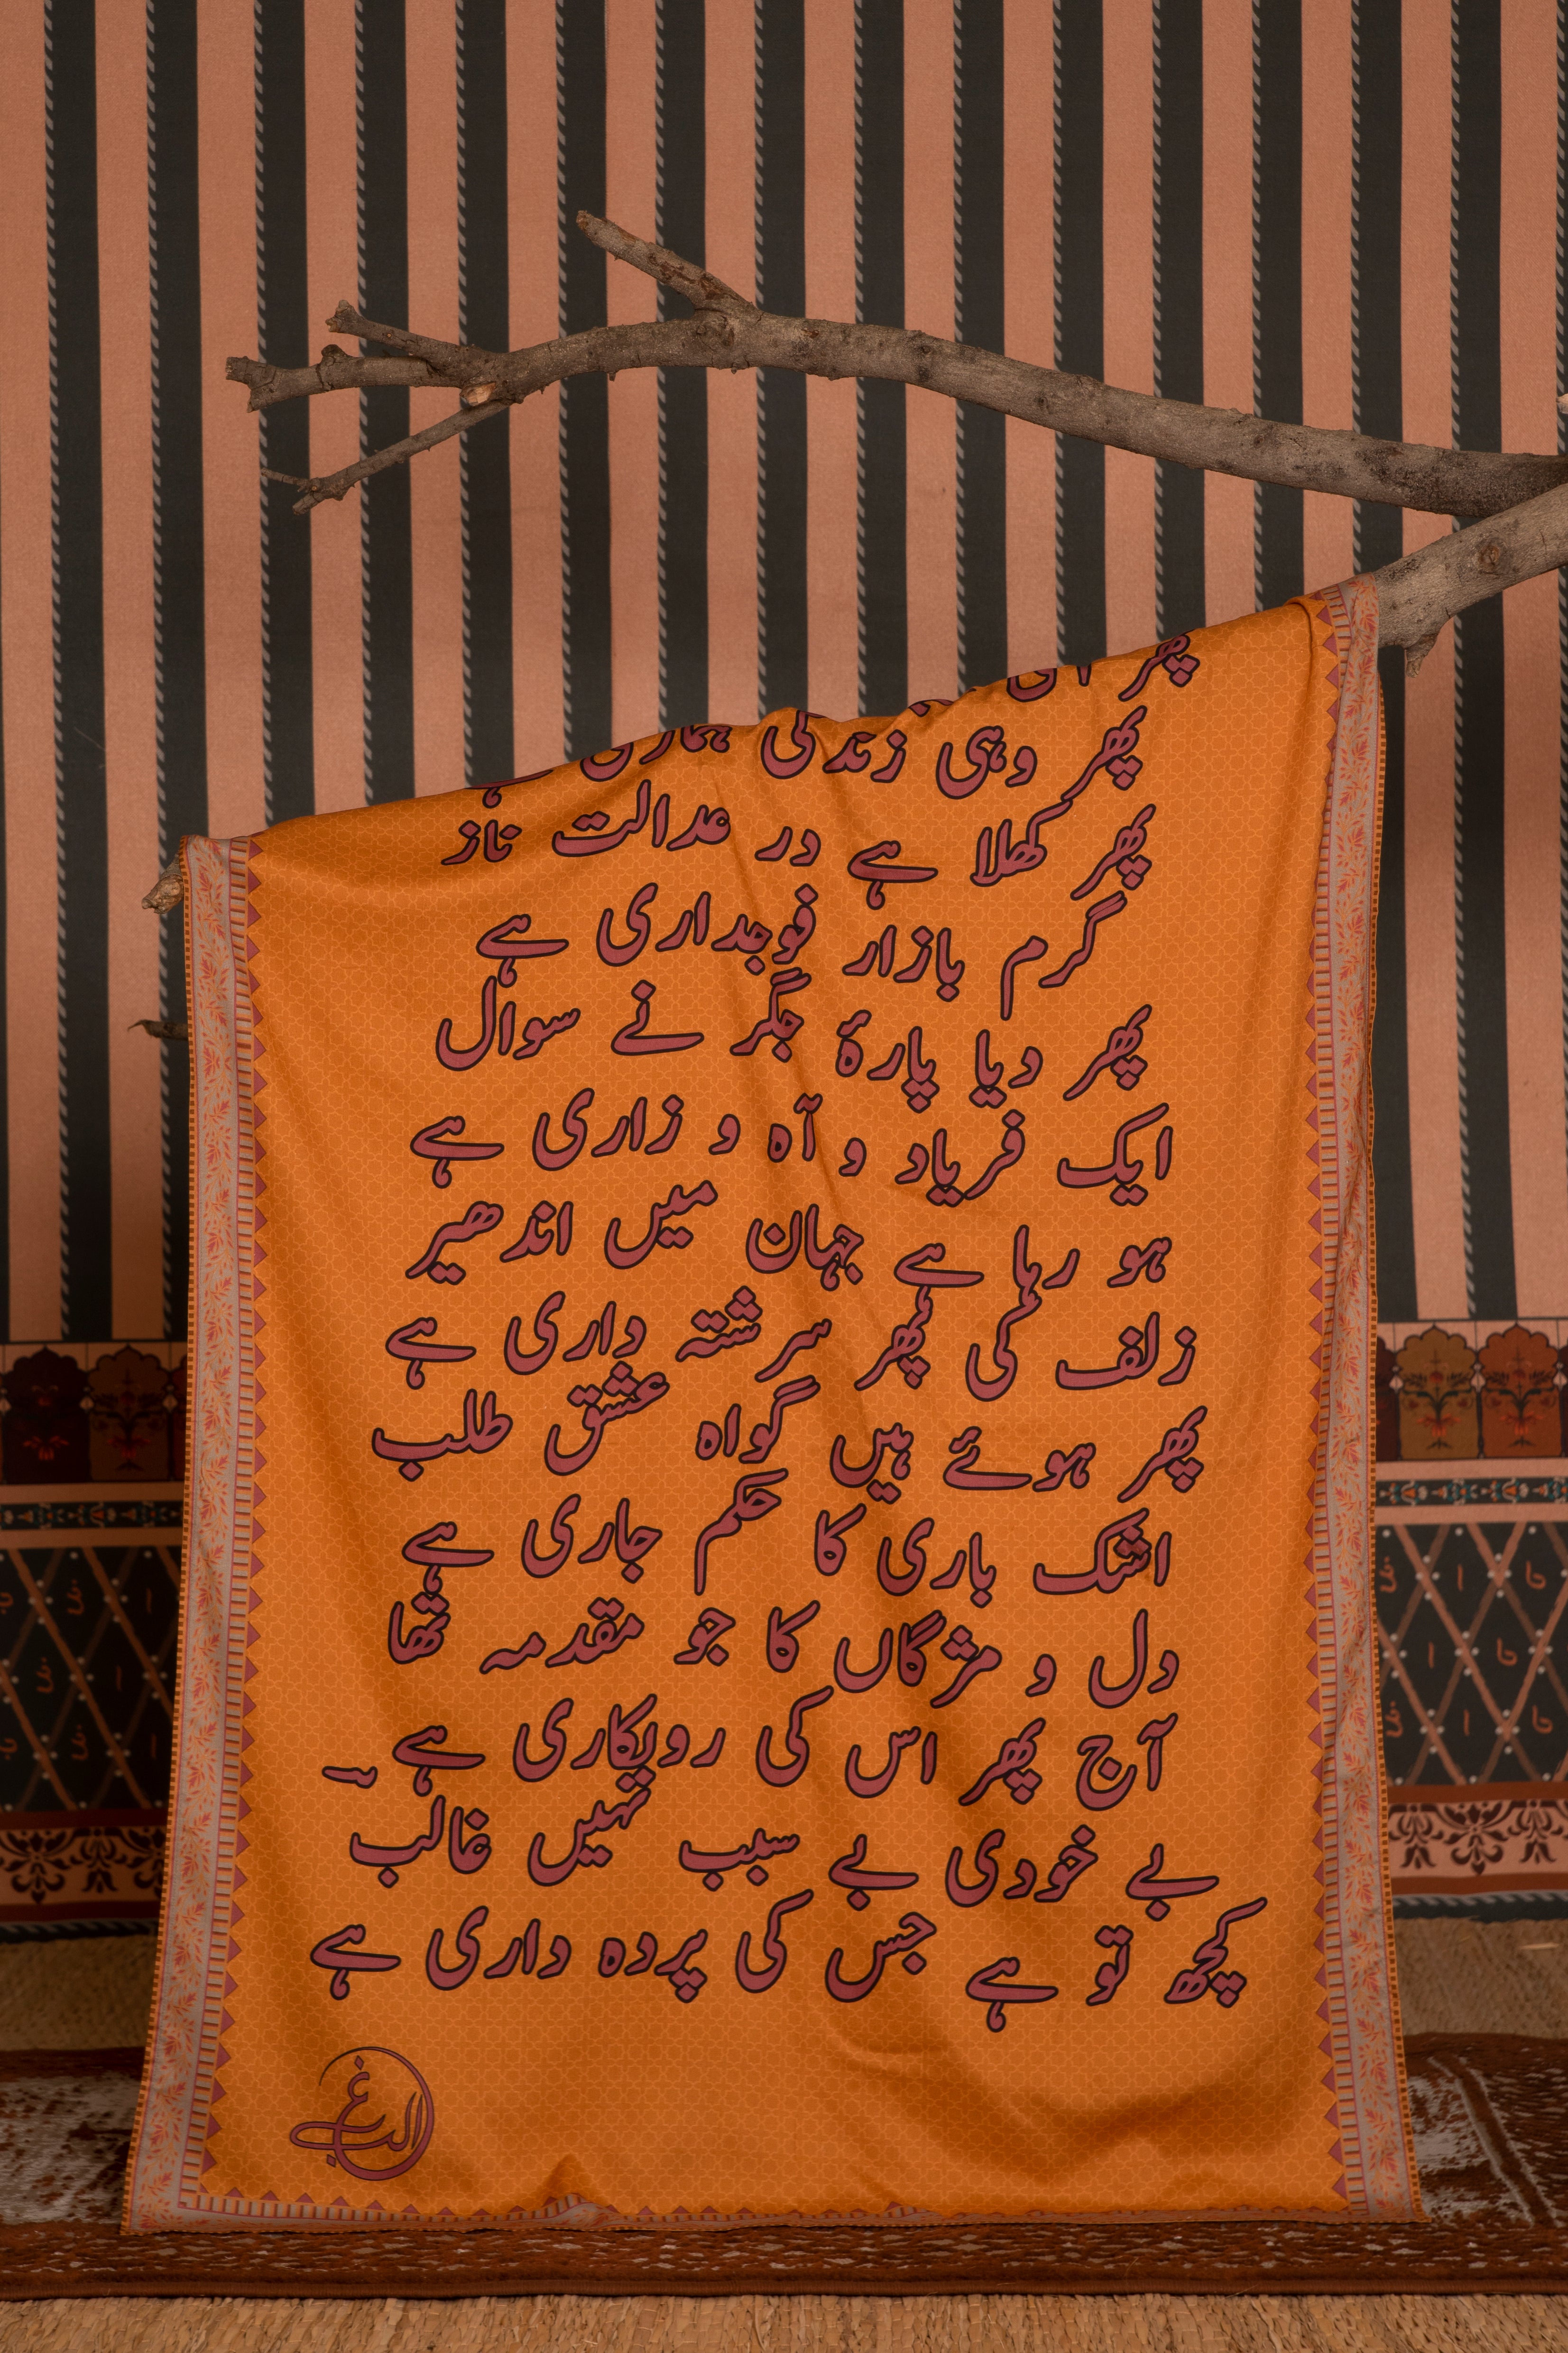 پھر
پھر وہی زندگی ہماری ہے
پھر کھلا ہے در عدالت ناز
گرم بازار فوجداری ہے
پھر دیا پارۂ جگر نے سوال
ایک فریاد و آہ و زاری ہے
ہو رہا ہے جہان میں اندھیر
زلف کی پھر سرشتہ داری ہے
پھر ہوئے ہیں گواہ عشق طلب
اشک باری کا حکم جاری ہے
دل و مژگاں کا جو مقدمہ تھا
آج پھر اس کی روبکاری ہے
بے خودی بے سبب نہیں غالب
کچھ تو ہے جس کی پردہ داری ہے